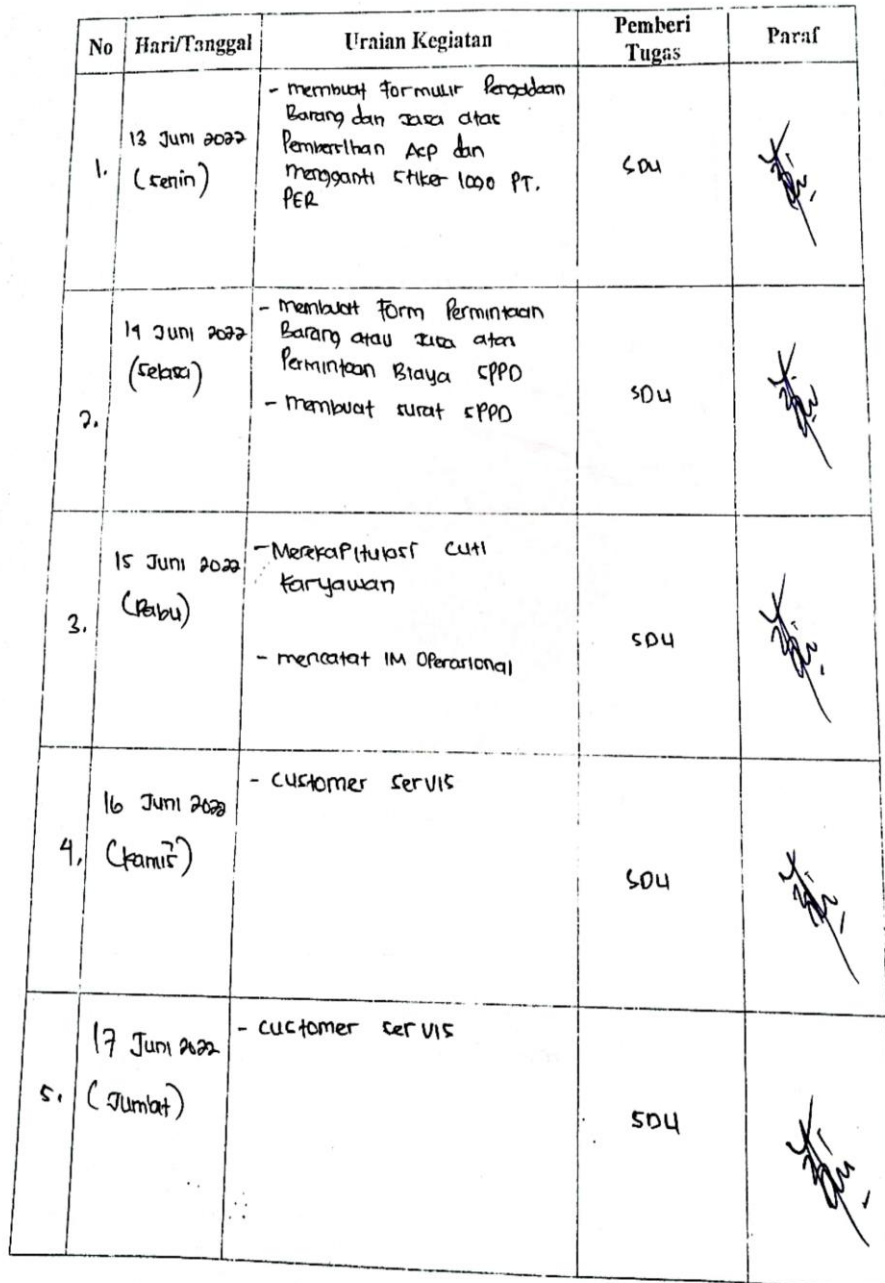 No Hari/Tanggal Uraian Kegiatan Pemberi Tugas Paraf
1. 13 Juni 2022 (Senin)
- membuat Formulir Pengadaan
Barang dan Jasa atas
Pembersihan Acp dan
mengganti Stiker logo PT.
PER
SDU
2. 14 Juni 2022 (Selasa)
- membuat Form Permintaan
Barang atau Jasa atas
Permintaan Biaya SPPD
- membuat surat SPPD
SDU
3. 15 Juni 2022 (Rabu)
- Merekapitulasi cuti
karyawan
- mencatat IM Operasional
SDU
4. 16 Juni 2022 (Kamis)
- customer servis
SDU
5. 17 Juni 2022 (Jumbat)
- customer servis
SDU